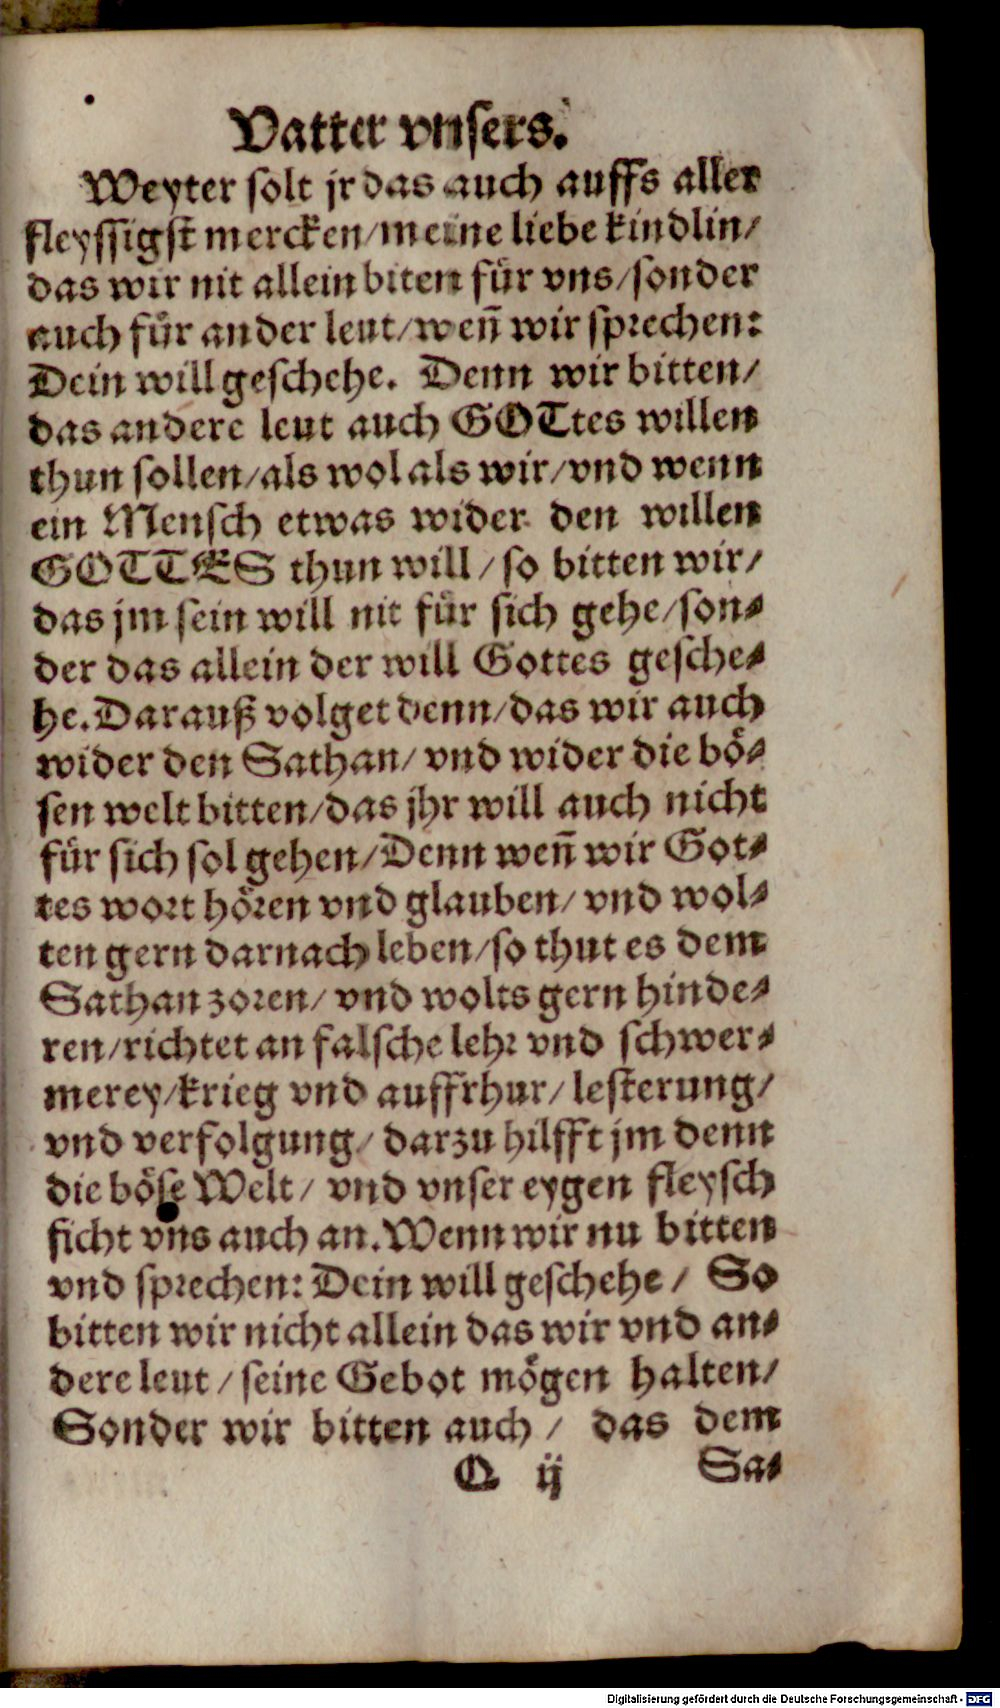 Vatter vnsers.
Weyter solt jr das auch auffs aller
fleyssigst mercken/meine liebe kindlin/
das wir nit allein biten für vns/sonder
auch für ander leut/weñ wir sprechen:
Dein will geschehe. Denn wir bitten/
das andere leut auch GOTtes willen
thun sollen/als wol als wir/vnd wenn
ein Mensch etwas wider den willen
GOTTES thun will/so bitten wir/
das jm sein will nit für sich gehe/son-
der das allein der will Gottes gesche-
he. Darauß volget denn/das wir auch
wider den Sathan/vnd wider die bö-
sen welt bitten/das jhr will auch nicht
für sich sol gehen/Denn weñ wir Got-
tes wort hören vnd glauben/vnd wol-
ten gern darnach leben/so thut es dem
Sathan zoren/vnd wolts gern hinde-
ren/richtet an falsche lehr vnd schwer-
merey/krieg vnd auffrhur/lesterung/
vnd verfolgung/darzu hilfft jm denn
die böse Welt/vnd vnser eygen fleysch
ficht vns auch an. Wenn wir nu bitten
vnd sprechen: Dein will geschehe/So
bitten wir nicht allein das wir vnd an-
dere leut/seine Gebot mögen halten/
Sonder wir bitten auch/das dem
Q ij Sa-
Digitalisierung gefördert durch die Deutsche Forschungsgemeinschaft - DFG